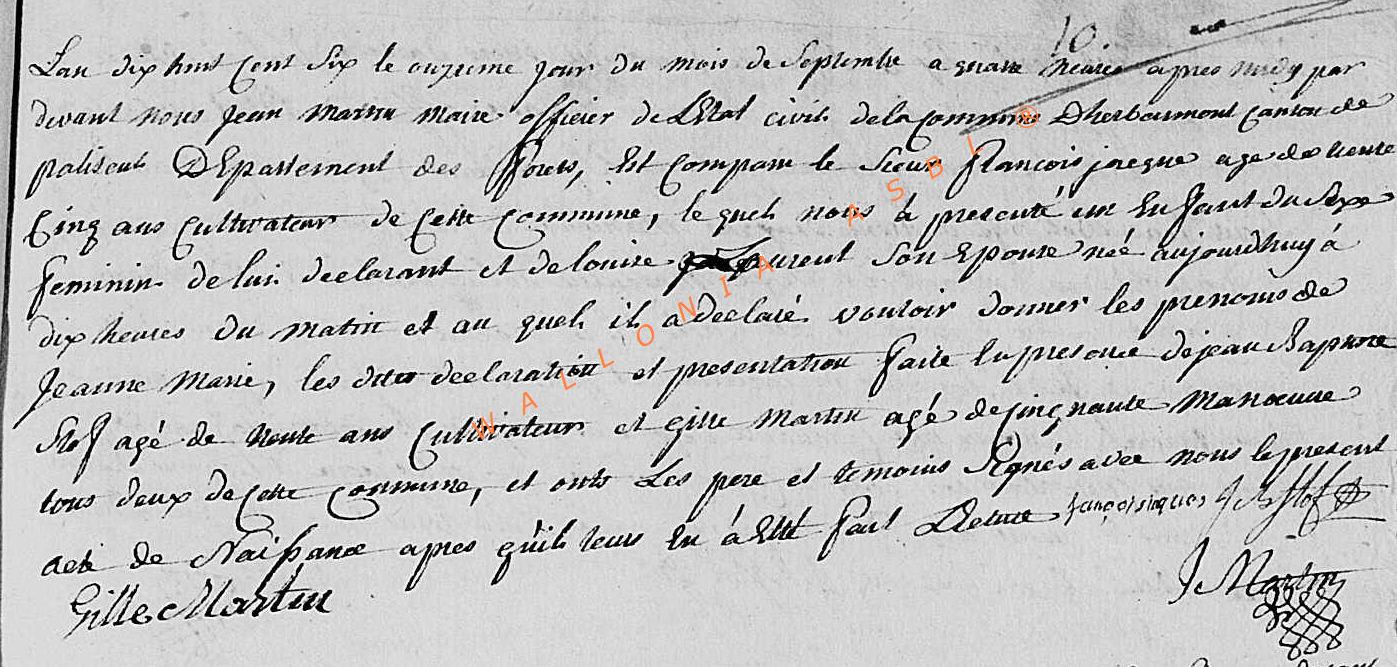 10.
Lan dix huit Cent Six le onzieme jour du mois de Septembre a quatre heures apres midy par
devant nous Jean Martin Maire officier de LEtat civil de la Commune Dherbeumont Canton de
paliseul DEpartement des Forets, Est Comparu le Sieur François jacque age de trente
Cinq ans Cultivateur de Cette Commune, le quel nous à presenté un Enfant du Sexe
feminin de lui declarant et de louise purent Son Epouse née aujourdhuy à
dix heures du matin et au quel il a declaré vouloir donner les prenoms de
Jeanne Marie, les dittes declaration et presentation faite En presence de jean Baptiste
Stof agé de trente ans Cultivateur et Gille Martin agé de Cinquante Manoeuvre
tous deux de Cette Commune, et onts Les pere et temoins Signés avec nous le present
acte de Naissance apres qu'il leurs En à Etté fait Lecture françois jaques J B Stof
Gille Martin J Martin
WALLONIA ASBL ©